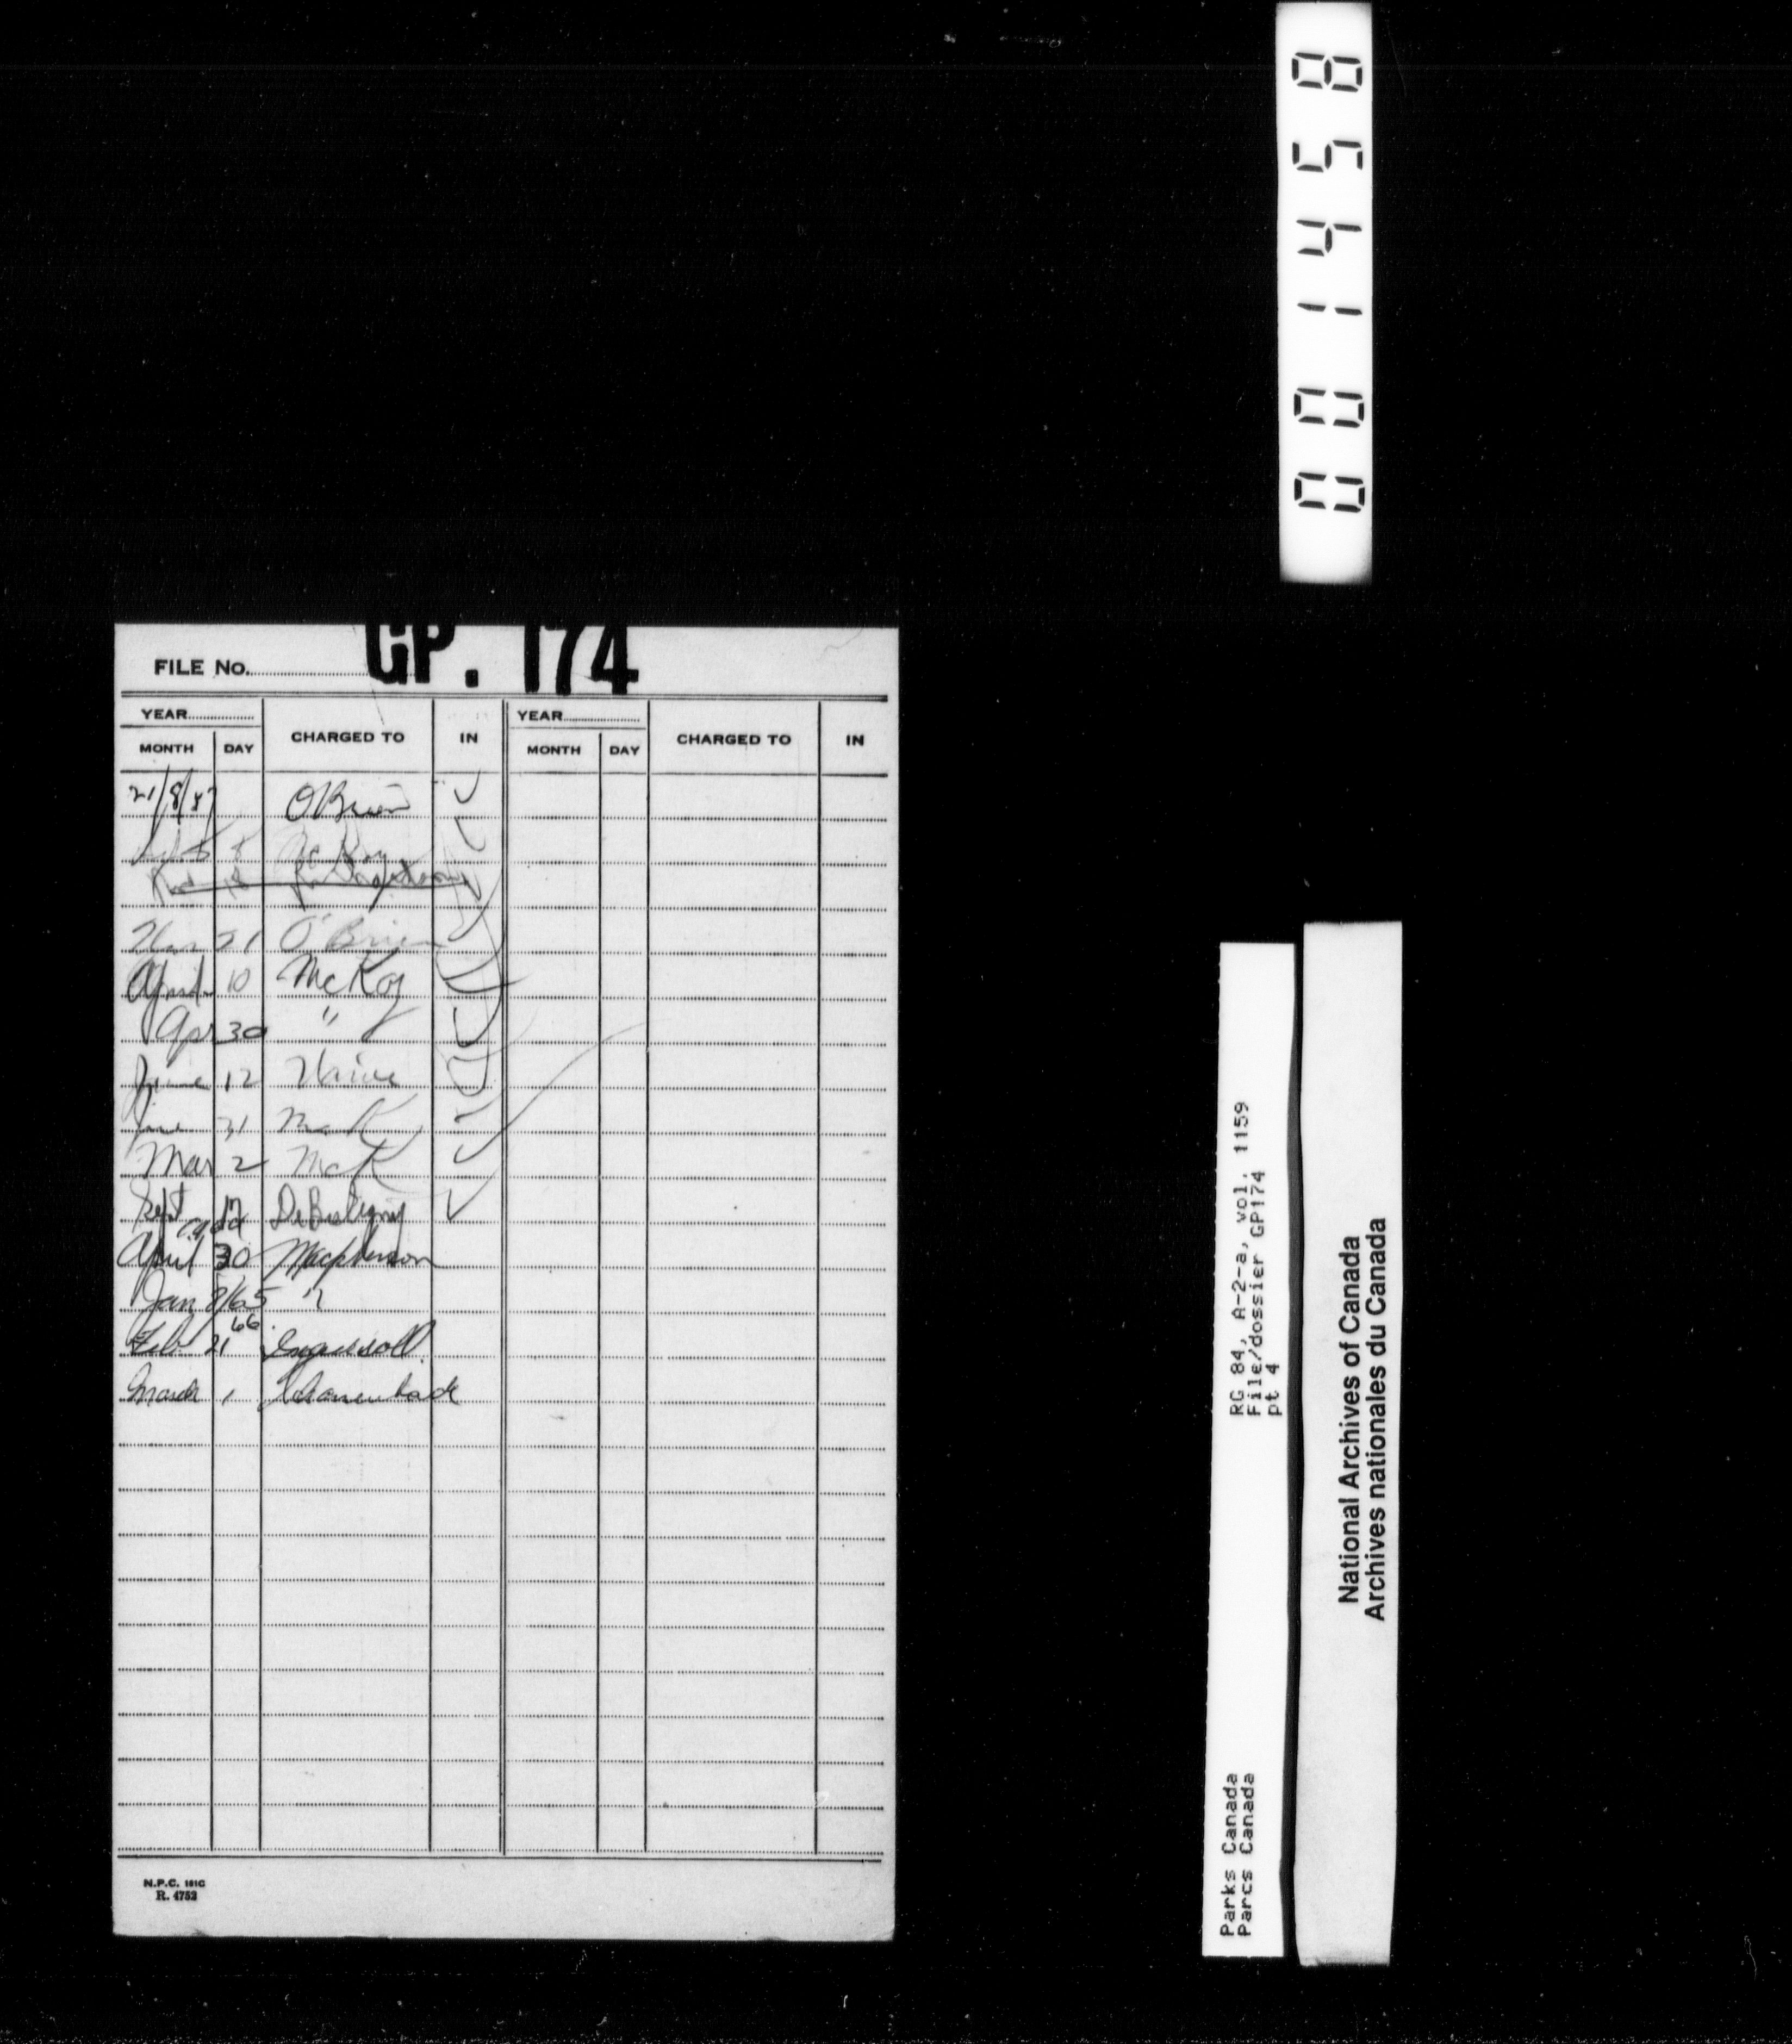 001458
FILE No. GP. 174
YEAR YEAR
MONTH DAY CHARGED TO IN MONTH DAY CHARGED TO IN
21/8/47 O'Brien ✓
Sept 5 McKay ✓
21 O'Brien
April 10 McKay
Apr 30 "
June 12
June 21 McK ✓
Mar 2 McK ✓
Sept 17 ✓
April 30 Macpherson
Jan 8/65 "
66
Feb 21 Ingersoll
March 1
N.P.C. 181C
R. 4753
RG 84, A-2-a, vol. 1159
File/dossier GP174
pt 4
Parks Canada
Parcs Canada
National Archives of Canada
Archives nationales du Canada